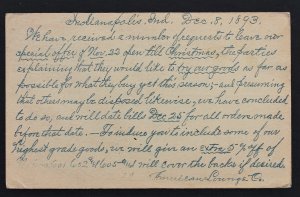 Indianapolis, Ind. Dec. 8, 1893.
We have received a number of requests to leave our
special offer of Nov. 22 open till Christmas, the parties
explaining that they would like to try our goods as far as
possible for what they buy yet this season;- and presuming
that others may be disposed likewise, we have concluded
to do so, and will date bills Dec 25 for all orders made
before that date. - To induce you to include some of our
highest grade goods, we will give an extra 5% off of
will cover the backs if desired
American Lounge Co.